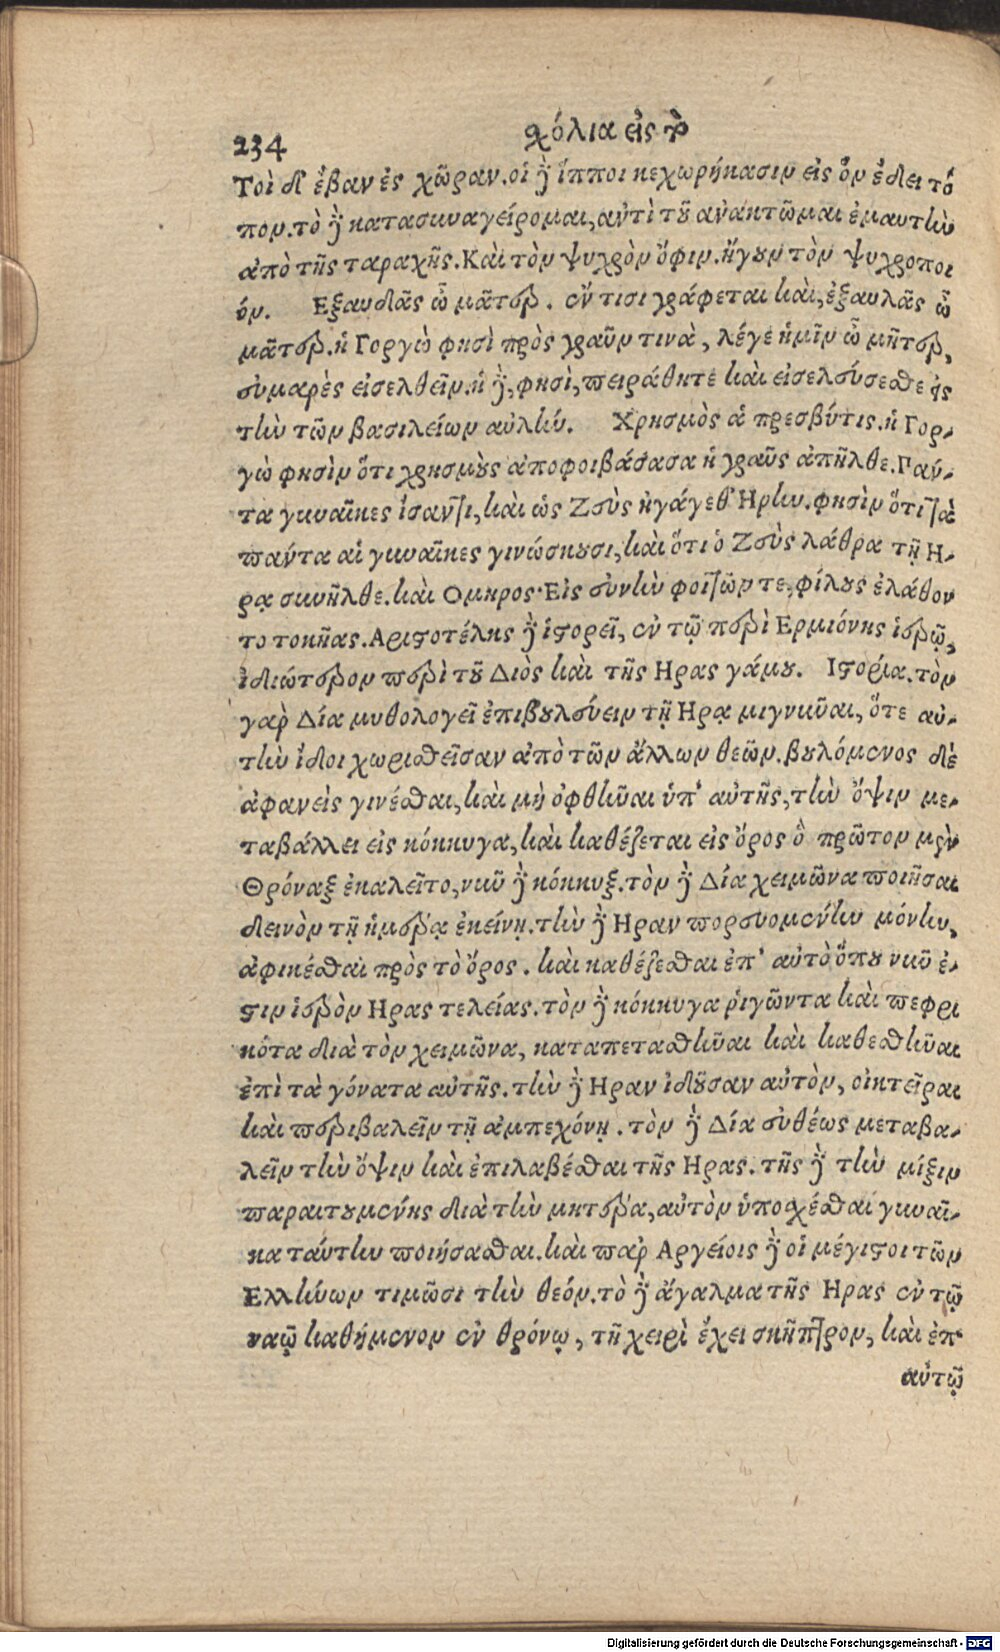 234 σχόλια εἰς τὸ
Τοὶ δ' ἔβαν ἐς χῶραν. οἱ δὲ ἵπποι κεχωρήκασιν εἰς ὃν ἔδει τό
πον. τὸ δὲ κατασκυαγείρομαι, αὐτὶ τοῦ ἀνακτῶμαι ἐμαυτὴν
ἀπὸ τῆς ταραχῆς. Καὶ τὸν ψυχρὸν ὄφιν. ἤγουν τὸν ψυχροποι
όν. Εξαυδᾶς ὦ μᾶτερ. ἔν τισι γράφεται καὶ, ἐξαυλᾶς ὦ
μᾶτερ. ἡ Γοργὼ φησὶ πρὸς γραῦν τινὰ, λέγε ἡμῖν ὦ μῆτερ,
εὐμαρὲς εἰσελθεῖν. ἡ δὲ, φησὶ, πειράθητε καὶ εἰσελεύσεσθε εἰς
τὴν τῶν βασιλείων αὐλήν. Χρησμὸς ἁ πρεσβύτις. ἡ Γορ-
γὼ φησὶν ὅτι χρησμοὺς ἀποφοιβάσασα ἡ γραῦς ἀπῆλθε. Γαύ-
τα γυναῖκες ἴσαντι, καὶ ὡς Ζεὺς ἠγάγεθ' Ηρην. φησὶν ὅτι τὰ
πάντα αἱ γυναῖκες γινώσκουσι, καὶ ὅτι ὁ Ζεὺς λάθρα τῇ Η-
ρᾳ συνῆλθε. καὶ Ομηρος· Εἰς εὐνὴν φοιτῶντε, φίλους ἐλάθον
το τοκῆας. Αριστοτέλης δὲ ἱστορεῖ, ἐν τῷ περὶ Ερμιόνης ἱερῷ,
ἰδιώτερον περὶ τοῦ Διὸς καὶ τῆς Ηρας γάμου. Ιστορία. τὸν
γὰρ Δία μυθολογεῖ ἐπιβουλεύειν τῇ Ηρᾳ μιγνῦναι, ὅτε αὐ-
τὴν ἴδοι χωρισθεῖσαν ἀπὸ τῶν ἄλλων θεῶν. βουλόμενος δὲ
ἀφανεὶς γινέσθαι, καὶ μὴ ὀφθῆναι ὑπ' αὐτῆς, τὴν ὄψιν με-
ταβάλλει εἰς κόκκυγα, καὶ καθέζεται εἰς ὄρος ὃ πρῶτον μὲν
Θρόναξ ἐκαλεῖτο, νῦν δὲ κόκκυξ. τὸν δὲ Δία χειμῶνα ποιῆσαι
δεινὸν τῇ ἡμέρᾳ ἐκείνῃ. τὴν δὲ Ηραν πορευομένην μόνην,
ἀφικέσθαι πρὸς τὸ ὄρος. καὶ καθέζεσθαι ἐπ' αὐτὸ ὅπου νῦν ἐ-
στιν ἱερὸν Ηρας τελείας. τὸν δὲ κόκκυγα ῥιγῶντα καὶ πεφρι
κότα διὰ τὸν χειμῶνα, καταπετασθῆναι καὶ καθεσθῆναι
ἐπὶ τὰ γόνατα αὐτῆς. τὴν δὲ Ηραν ἰδοῦσαν αὐτὸν, οἰκτεῖραι
καὶ περιβαλεῖν τῇ ἀμπεχόνῃ. τὸν δὲ Δία εὐθέως μεταβα-
λεῖν τὴν ὄψιν καὶ ἐπιλαβέσθαι τῆς Ηρας. τῆς δὲ τὴν μίξιν
παραιτουμένης διὰ τὴν μητέρα, αὐτὸν ὑποσχέσθαι γυναῖ-
κα ταύτην ποιήσασθαι. καὶ παρ Αργείοις δὲ οἱ μέγιστοι τῶν
Ελλήνων τιμῶσι τὴν θεόν. τὸ δὲ ἄγαλμα τῆς Ηρας ἐν τῷ
ναῷ καθήμενον ἐν θρόνῳ, τῇ χειρὶ ἔχει σκῆπτρον, καὶ ἐπ'
αὐτῷ
Digitalisierung gefördert durch die Deutsche Forschungsgemeinschaft - DFG